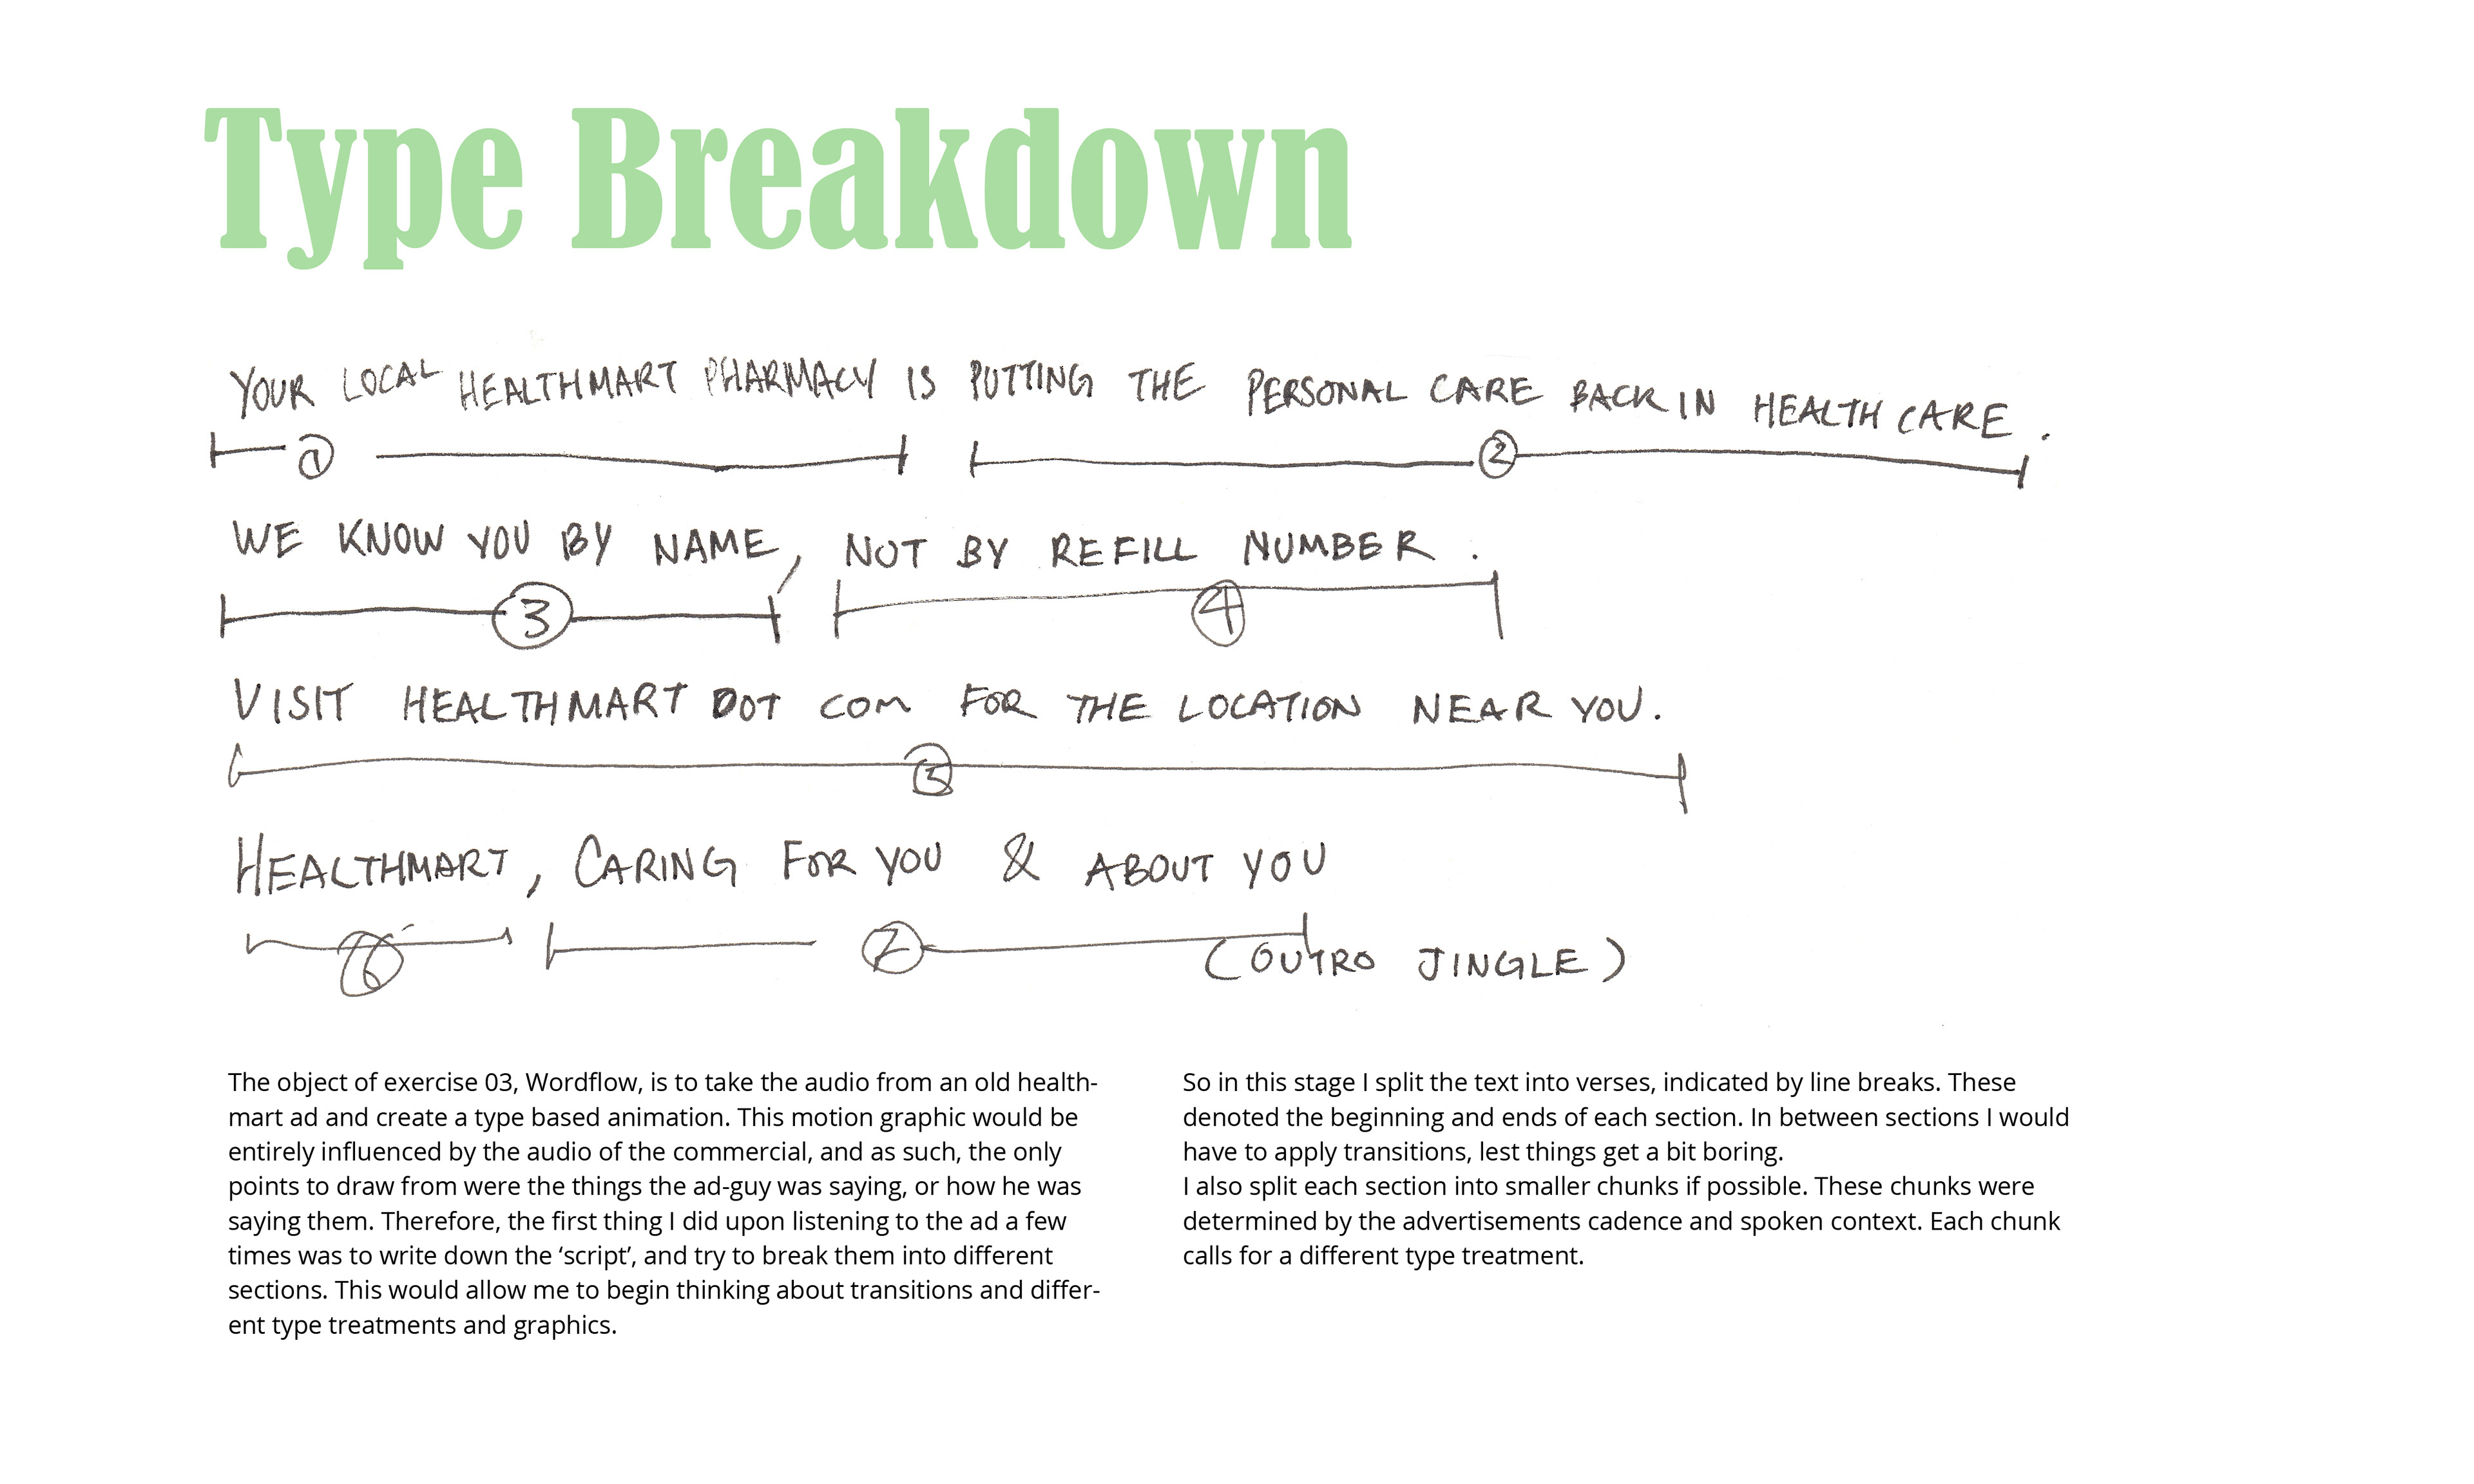 Type Breakdown
YOUR LOCAL HEALTHMART PHARMACY IS PUTTING THE PERSONAL CARE BACK IN HEALTH CARE.
1 2
WE KNOW YOU BY NAME, NOT BY REFILL NUMBER.
3 4
VISIT HEALTHMART DOT COM FOR THE LOCATION NEAR YOU.
5
HEALTHMART, CARING FOR YOU & ABOUT YOU
6 7 (OUTRO JINGLE)
The object of exercise 03, Wordflow, is to take the audio from an old health-
mart ad and create a type based animation. This motion graphic would be
entirely influenced by the audio of the commercial, and as such, the only
points to draw from were the things the ad-guy was saying, or how he was
saying them. Therefore, the first thing I did upon listening to the ad a few
times was to write down the ‘script’, and try to break them into different
sections. This would allow me to begin thinking about transitions and differ-
ent type treatments and graphics.
So in this stage I split the text into verses, indicated by line breaks. These
denoted the beginning and ends of each section. In between sections I would
have to apply transitions, lest things get a bit boring.
I also split each section into smaller chunks if possible. These chunks were
determined by the advertisements cadence and spoken context. Each chunk
calls for a different type treatment.